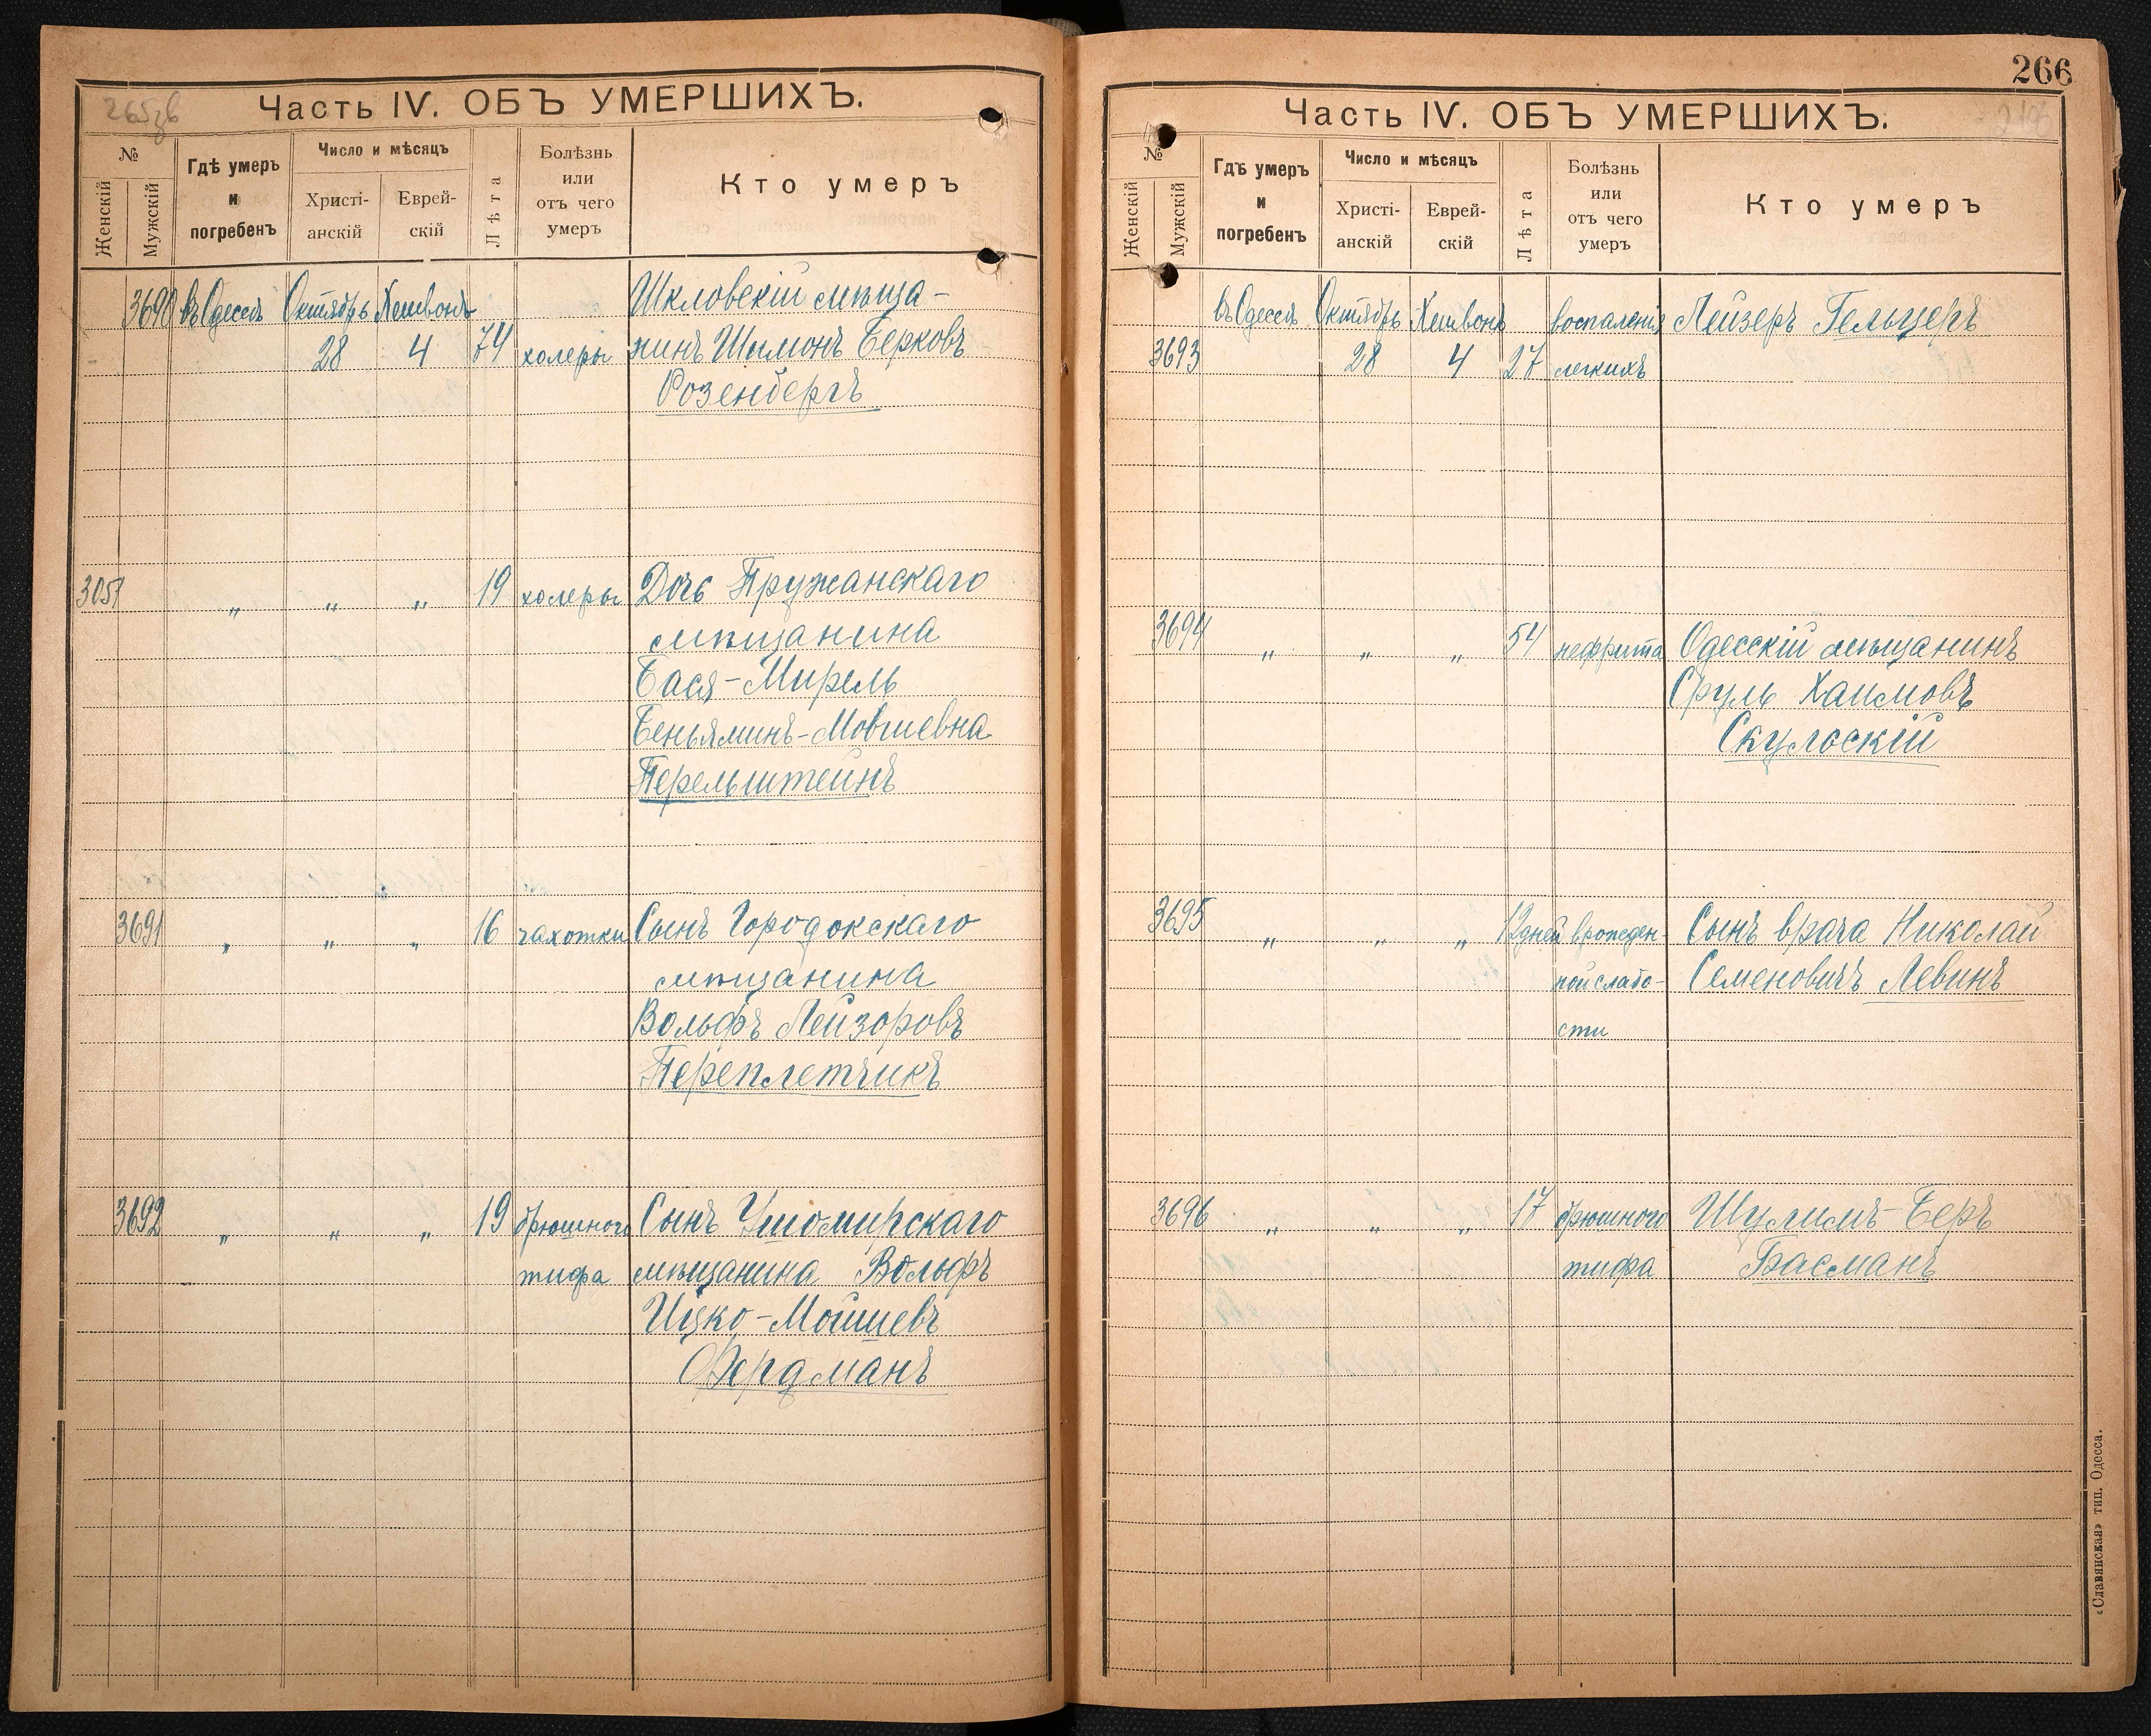 265зв
Часть IV. ОБЪ УМЕРШИХЪ.
№
Женскій
Мужскій
Гдѣ умеръ
и
погребенъ
Число и мѣсяцъ
Христі-
анскій
Еврей-
скій
Лѣта
Болѣзнь
или
отъ чего
умеръ
Кто умеръ
3690 въ Одессѣ Октябрь Хешвонъ Шкловскій мѣща-
28 4 74 холеры нинъ Шимонъ Берковъ
Розенбергъ
3051 „ „ „ 19 холеры Дочь Пружанскаго
мѣщанина
Бася-Мирель
Беньяминъ-Мовшевна
Перельштейнъ
3691 „ „ „ 16 чахотки Сынъ Городокскаго
мѣщанина
Вольфъ Лейзоровъ
Переплетчикъ
3692 „ „ „ 19 брюшного Сынъ Ушомирскаго
тифа мѣщанина Вольфъ
Ицко-Мошшевъ
Фердманъ
266
Часть IV. ОБЪ УМЕРШИХЪ.
№
Женскій
Мужскій
Гдѣ умеръ
и
погребенъ
Число и мѣсяцъ
Христі-
анскій
Еврей-
скій
Лѣта
Болѣзнь
или
отъ чего
умеръ
Кто умеръ
въ Одессѣ Октябрь Хешвонъ воспаленія Лейзеръ Гельцеръ
3693 28 4 27 легкихъ
3694 „ „ „ 54 нефрита Одесскій мѣщанинъ
Сруль Хаимовъ
Скулоскій
3695 „ „ „ 12 дней врожден- Сынъ врача Николай
ной слабо- Семеновичъ Левинъ
сти
3696 „ „ „ 17 брюшного Шулимъ-Беръ
тифа Басманъ
«Славянская» тип. Одесса.